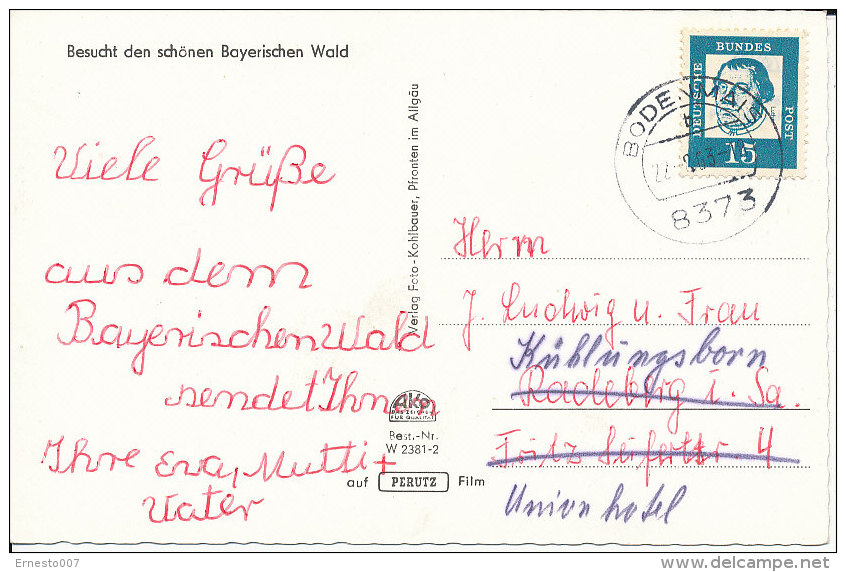 Besucht den schönen Bayerischen Wald
Viele Grüße
aus dem
Bayerischen Wald
sendet Ihnen
Ihre Eva, Mutti +
Vater
Verlag Foto-Kohlbauer, Pfronten im Allgäu
AKO
DAS ZEICHEN
FÜR QUALITÄT
Best.-Nr.
W 2381-2
auf PERUTZ Film
DEUTSCHE BUNDES POST
15
BODENMAIS
8373
Herrn
J. Ludwig u. Frau
Kühlungsborn
Radeberg i. Sa.
Fritz 4
Unionhotel
Ernesto007
delcampe.net